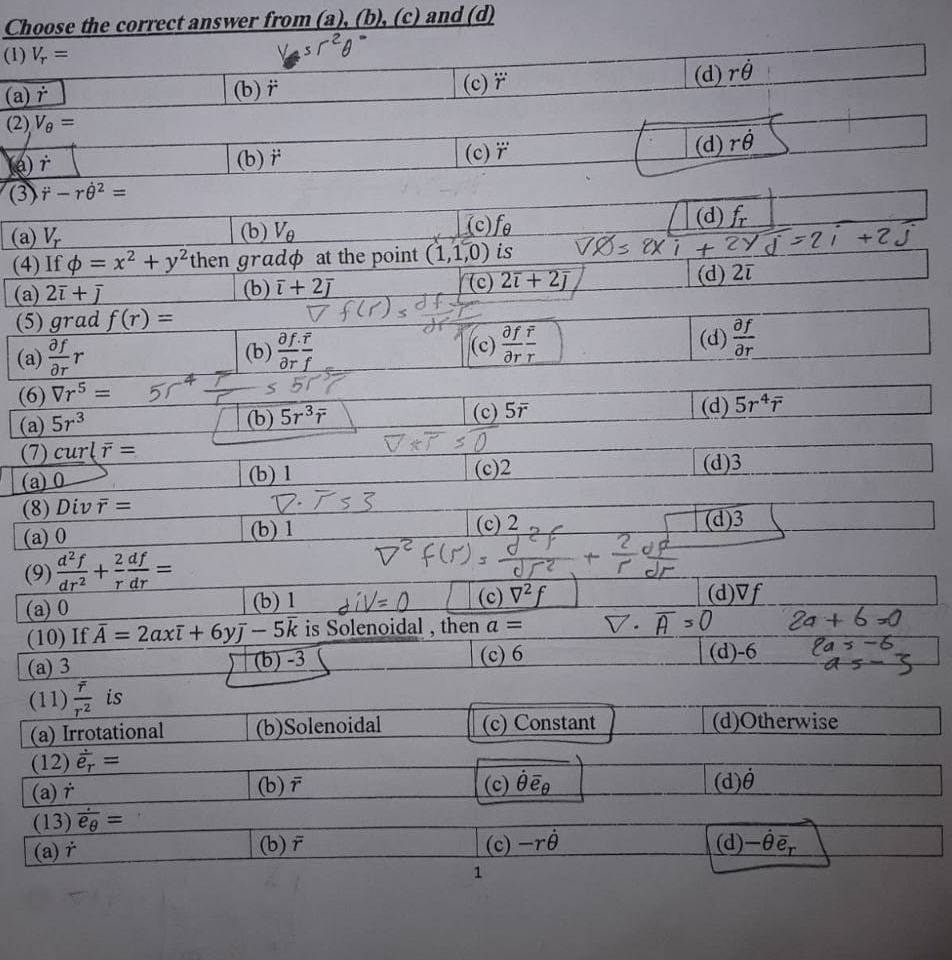 Choose the correct answer from (a), (b), (c) and (d)
(1) Vᵣ = r²θ
(a) ṙ (b) r̈ (c) r⃛ (d) rθ̇
(2) V_θ =
(a) ṙ (b) r̈ (c) r⃛ (d) rθ̇
(3) r̈ − rθ̇² =
(a) Vᵣ (b) V_θ (c) f_θ (d) fᵣ
(4) If ϕ = x² + y² then gradϕ at the point (1,1,0) is ∇Ø = 2x i + 2y j = 2i + 2j
(a) 2ī + j̄ (b) ī + 2j̄ (c) 2ī + 2j̄ (d) 2ī
(5) grad f(r) = ∇ f(r) = df/dr r̄/r
(a) ∂f/∂r r (b) ∂f.r̄/∂r f (c) ∂f r̄/∂r r (d) ∂f/∂r
(6) ∇r⁵ = 5r⁴ r̄/r = 5r³r̄
(a) 5r³ (b) 5r³r̄ (c) 5r̄ (d) 5r⁴r̄
(7) curl r̄ = ∇×r̄ = 0
(a) 0 (b) 1 (c)2 (d)3
(8) Div r̄ = ∇. r̄ = 3
(a) 0 (b) 1 (c) 2 (d)3
(9) d²f/dr² + 2/r df/dr = ∇² f(r) = d²f/dr² + 2/r df/dr
(a) 0 (b) 1 (c) ∇²f (d)∇f
div = 0
(10) If Ā = 2axī + 6yj̄ − 5k̄ is Solenoidal , then a = ∇. Ā = 0 2a + 6 = 0
(a) 3 (b) -3 (c) 6 (d)-6 2a = -6
a = -3
(11) r̄/r² is
(a) Irrotational (b)Solenoidal (c) Constant (d)Otherwise
(12) ē̇ᵣ =
(a) ṙ (b) r̄ (c) θ̇ē_θ (d)θ̇
(13) ē̇_θ =
(a) ṙ (b) r̄ (c) −rθ̇ (d)−θ̇ēᵣ
1